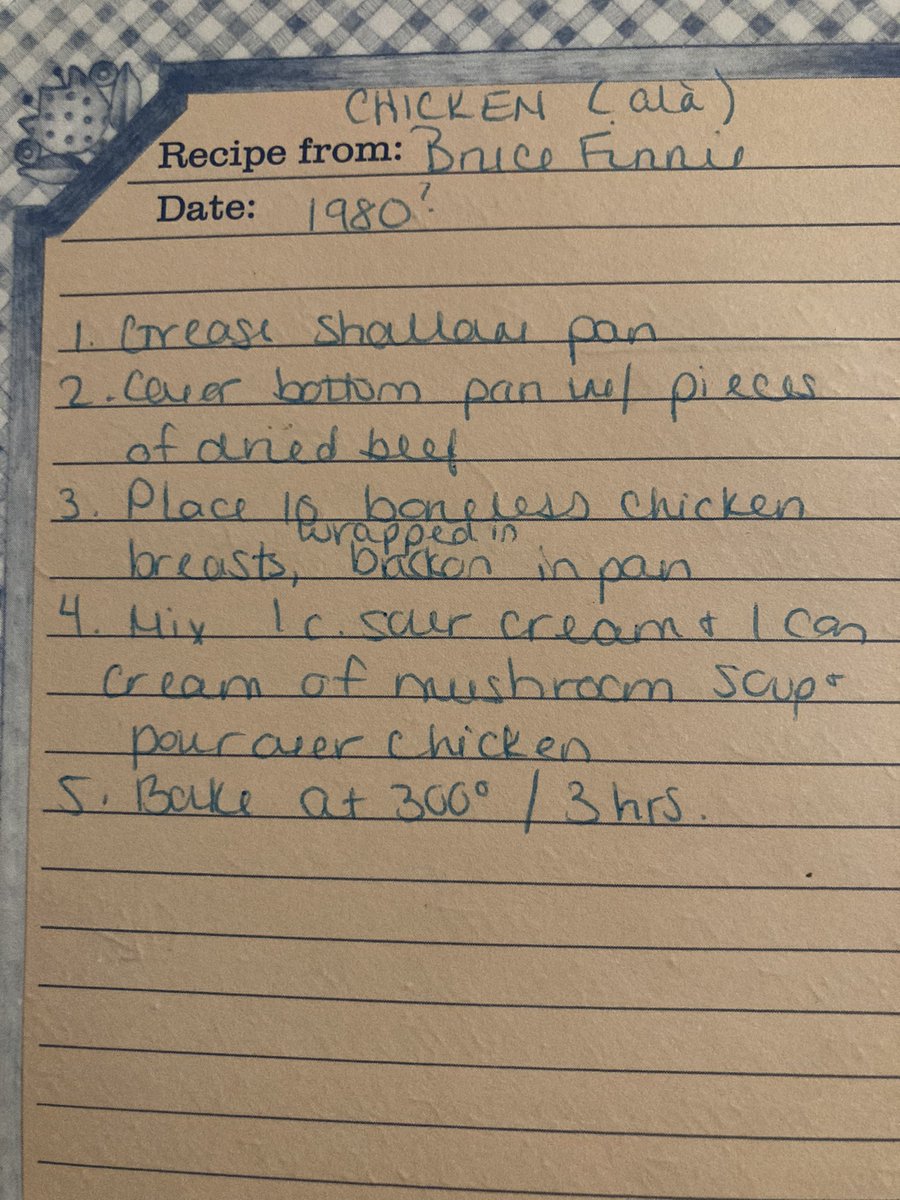 CHICKEN (alà)
Recipe from: Bruce Finnie
Date: 1980?
1. Grease shallow pan
2. Cover bottom pan w/ pieces
of dried beef
3. Place boneless chicken
wrapped in
breasts, backon in pan
4. Mix 1 c. sour cream + 1 can
cream of mushroom soup +
pour over chicken
5. Bake at 300° / 3 hrs.